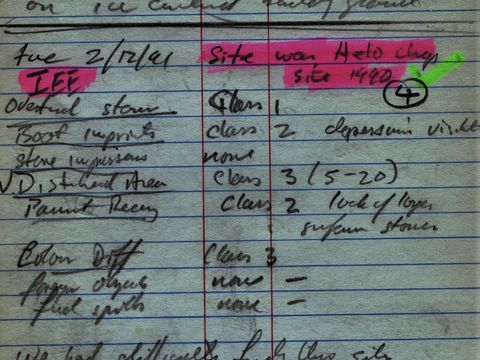 on ice covered ground
Tue 2/12/91 Site was Helo
IEE Site 1990 4
Overturned stones Class 1
Boot imprints class 2 depressions visible
Stone impressions none
√ Disturbed Area Class 3 (5-20)
Class 2 lack of larger
surface stones
Colour Diff Class 3
foreign objects none —
fuel spills none —
We had difficulty finding this site